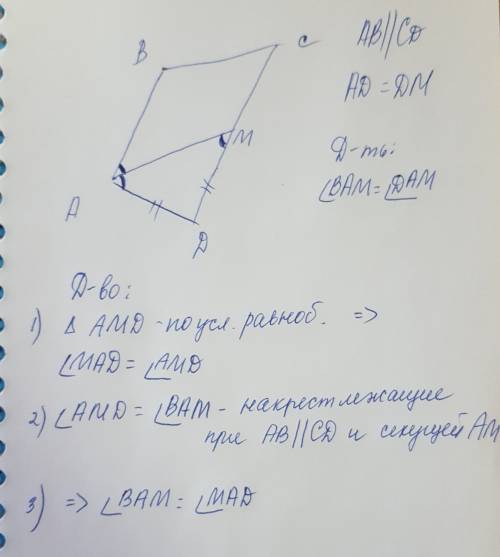 B
C
AB||CD
AD = DM
M
Д-ть:
∠BAM = ∠DAM
A
D
Д-во:
1) Δ AMD - по усл. равноб. =>
∠MAD = ∠AMD
2) ∠AMD = ∠BAM - накрест лежащие
при AB||CD и секущей AM
3) => ∠BAM = ∠MAD